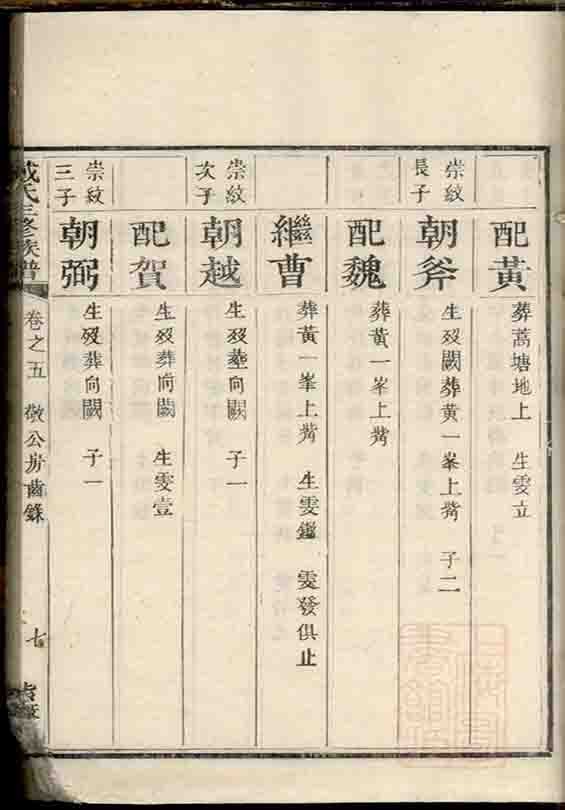 配黃
葬蒿塘地上 生雯立
崇紋
長子
朝斧
生歿闕葬黃一峯上觜 子二
配魏
葬黃一峯上觜
繼曹
葬黃一峯上觜 生雯鑑 雯發俱止
崇紋
次子
朝越
生歿葬向闕 子一
配賀
生歿葬向闕 生雯壹
崇紋
三子
朝弼
生歿葬向闕 子一
氏三修族譜 卷之五 敬公房齒錄 七